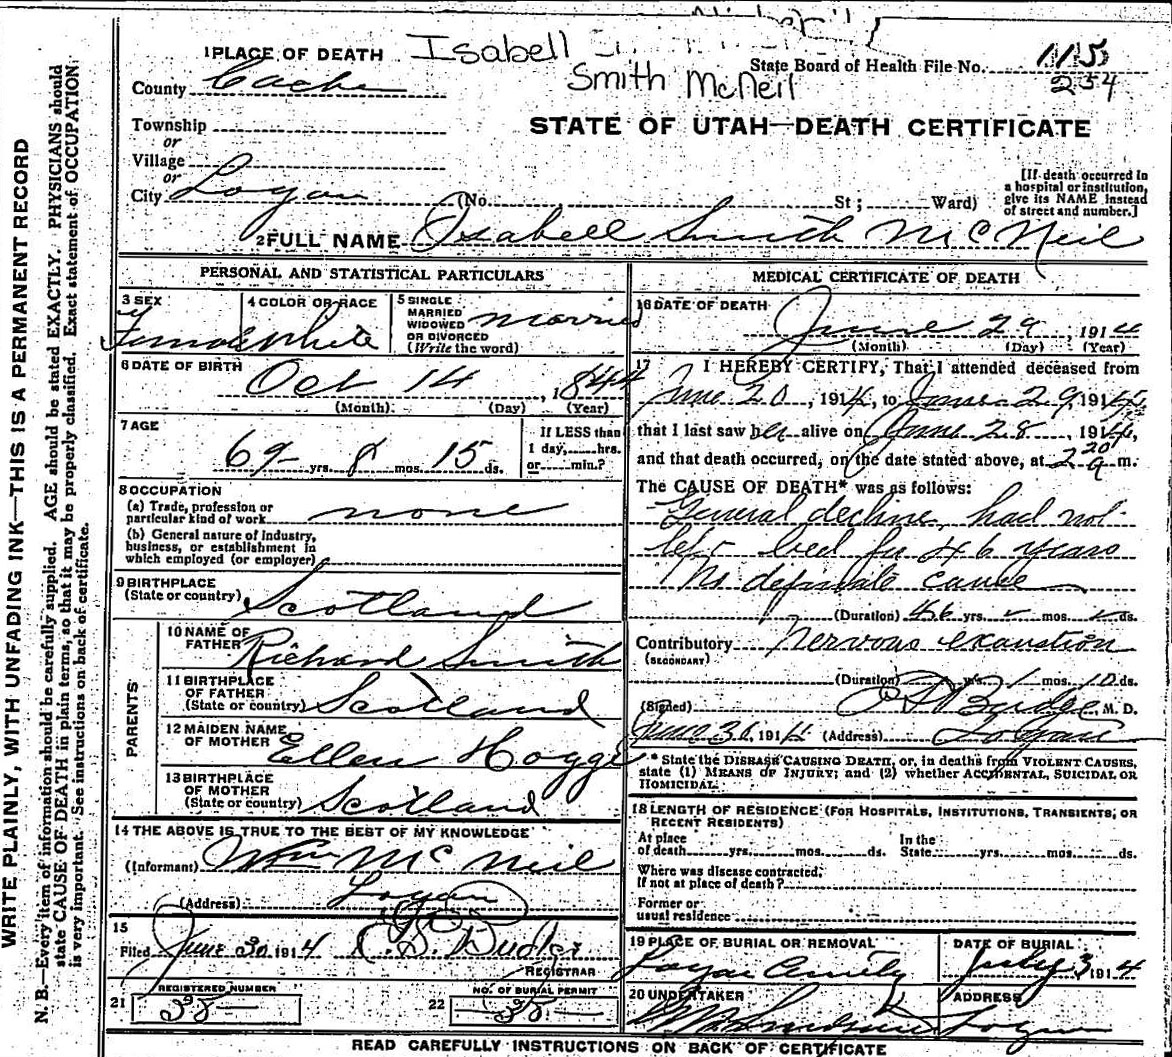 Isabell
Smith McNeil
1 PLACE OF DEATH
County Cache
State Board of Health File No. 115
254
Township
or
Village
or
City Logan (No. St; Ward)
STATE OF UTAH—DEATH CERTIFICATE
[If death occurred in
a hospital or institution,
give its NAME instead
of street and number.]
2 FULL NAME Isabell Smith McNeil
PERSONAL AND STATISTICAL PARTICULARS
3 SEX
Female
4 COLOR OR RACE
White
5 SINGLE
MARRIED
WIDOWED
OR DIVORCED
(Write the word)
married
6 DATE OF BIRTH
Oct 14, 1844
(Month) (Day) (Year)
7 AGE
69 yrs. 8 mos. 15 ds.
If LESS than
1 day, hrs.
or min.?
8 OCCUPATION
(a) Trade, profession or
particular kind of work none
(b) General nature of industry,
business, or establishment in
which employed (or employer)
9 BIRTHPLACE
(State or country) Scotland
PARENTS
10 NAME OF
FATHER Richard Smith
11 BIRTHPLACE
OF FATHER
(State or country) Scotland
12 MAIDEN NAME
OF MOTHER Ellen Hogge
13 BIRTHPLACE
OF MOTHER
(State or country) Scotland
14 THE ABOVE IS TRUE TO THE BEST OF MY KNOWLEDGE
(Informant) Wm McNeil
(Address) Logan
15
Filed June 30 1914
REGISTRAR
21 REGISTERED NUMBER
38
22 NO. OF BURIAL PERMIT
35
MEDICAL CERTIFICATE OF DEATH
16 DATE OF DEATH
June 29, 1914
(Month) (Day) (Year)
17 I HEREBY CERTIFY, That I attended deceased from
June 20, 1914, to June 29, 1914,
that I last saw her alive on June 28, 1914,
and that death occurred, on the date stated above, at 2 20 a m.
The CAUSE OF DEATH* was as follows:
General decline, had not
left bed for 46 years
No definate cause
(Duration) 46 yrs. mos. ds.
Contributory Nervous exaustion
(SECONDARY)
(Duration) yrs. 1 mos. 10 ds.
(Signed) Budge, M. D.
June 30, 1914 (Address) Logan
* State the DISEASE CAUSING DEATH, or, in deaths from VIOLENT CAUSES,
state (1) MEANS OF INJURY; and (2) whether ACCIDENTAL, SUICIDAL OR
HOMICIDAL.
18 LENGTH OF RESIDENCE (FOR HOSPITALS, INSTITUTIONS, TRANSIENTS, OR
RECENT RESIDENTS)
At place
of death yrs. mos. ds.
In the
State yrs. mos. ds.
Where was disease contracted,
if not at place of death?
Former or
usual residence
19 PLACE OF BURIAL OR REMOVAL
Logan
DATE OF BURIAL
July 3 1914
20 UNDERTAKER
ADDRESS
Logan
READ CAREFULLY INSTRUCTIONS ON BACK OF CERTIFICATE
WRITE PLAINLY, WITH UNFADING INK—THIS IS A PERMANENT RECORD
N. B.—Every item of information should be carefully supplied. AGE should be stated EXACTLY. PHYSICIANS should
state CAUSE OF DEATH in plain terms, so that it may be properly classified. Exact statement of OCCUPATION
is very important. See instructions on back of certificate.